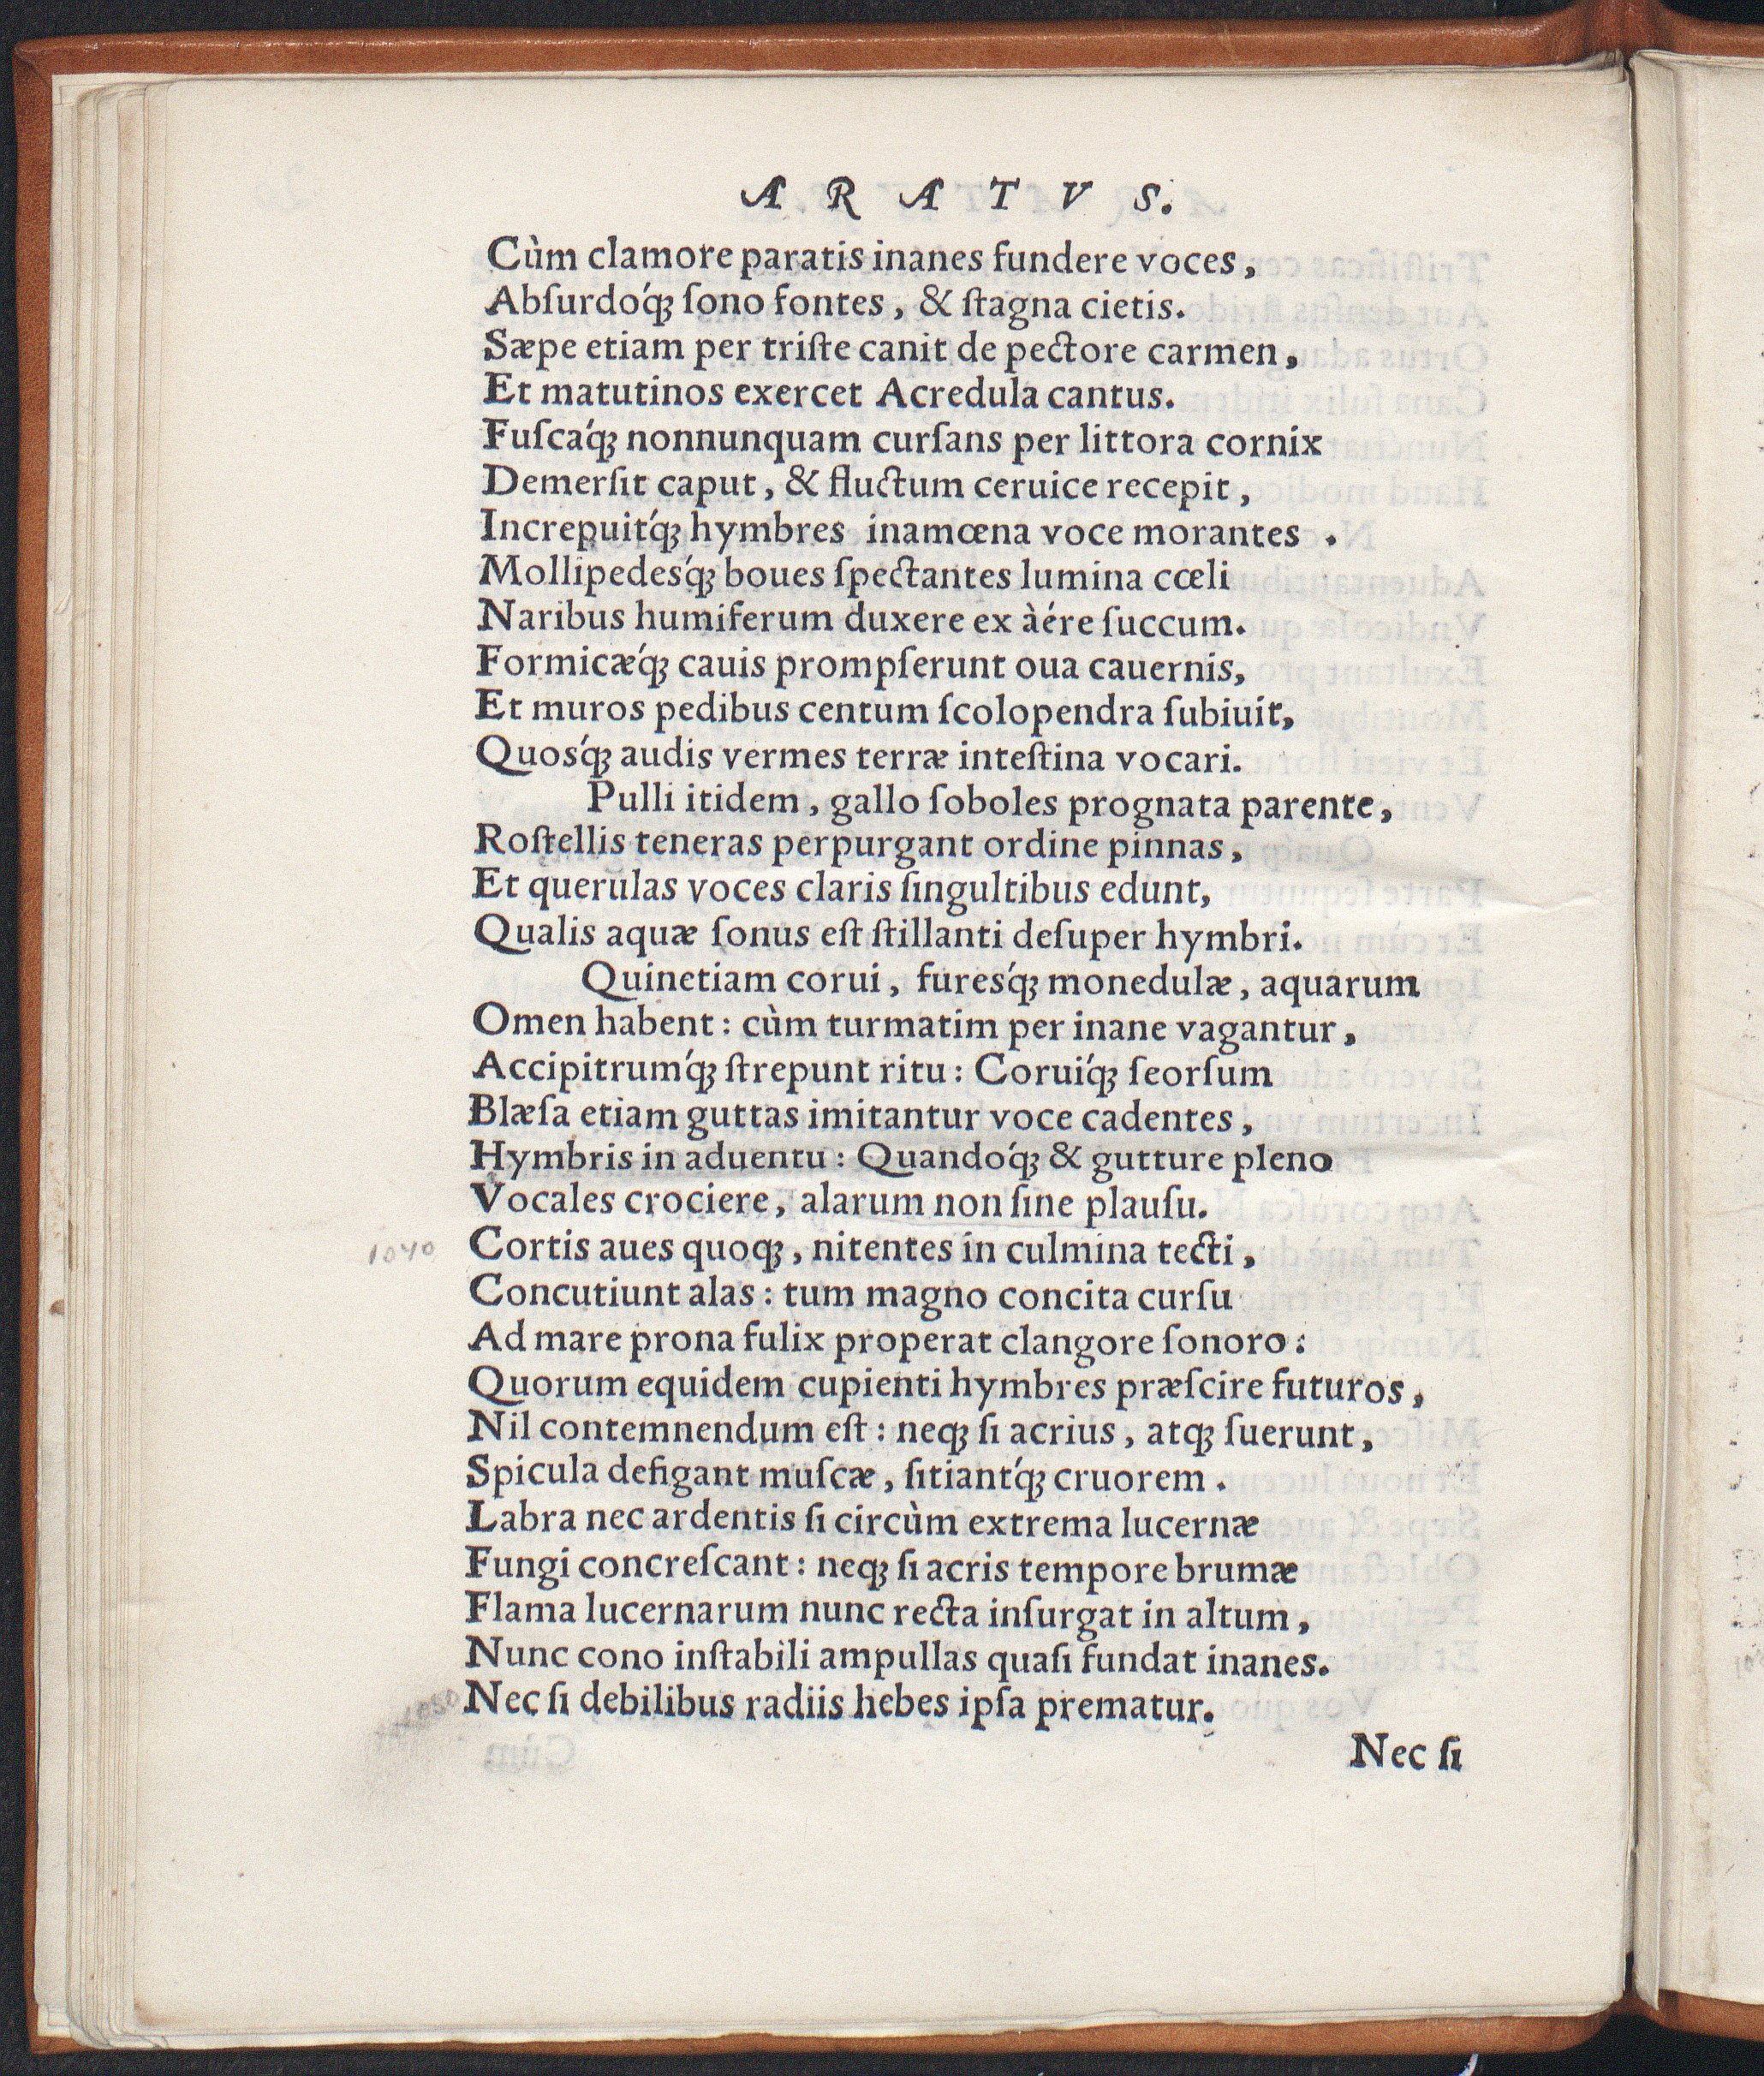 ARATVS.
Cùm clamore paratis inanes fundere voces,
Abſurdóq; ſono fontes, & ſtagna cietis.
Sæpe etiam per triſte canit de pectore carmen,
Et matutinos exercet Acredula cantus.
Fuſcáq; nonnunquam curſans per littora cornix
Demerſit caput, & fluctum ceruice recepit,
Increpuit́q; hymbres inamœna voce morantes.
Mollipedeſq́; boues ſpectantes lumina cœli
Naribus humiferum duxere ex àére ſuccum.
Formicæq́; cauis prompſerunt oua cauernis,
Et muros pedibus centum ſcolopendra ſubiuit,
Quosq́; audis vermes terræ inteſtina vocari.
Pulli itidem, gallo ſoboles prognata parente,
Roſtellis teneras perpurgant ordine pinnas,
Et querulas voces claris ſingultibus edunt,
Qualis aquæ ſonus eſt ſtillanti deſuper hymbri.
Quinetiam corui, furesq́; monedulæ, aquarum
Omen habent: cùm turmatim per inane vagantur,
Accipitrumq́; ſtrepunt ritu: Coruiq́; ſeorſum
Blæſa etiam guttas imitantur voce cadentes,
Hymbris in aduentu: Quandoq́; & gutture pleno
Vocales crociere, alarum non ſine plauſu.
1040 Cortis aues quoq;, nitentes in culmina tecti,
Concutiunt alas: tum magno concita curſu
Ad mare prona fulix properat clangore ſonoro:
Quorum equidem cupienti hymbres præſcire futuros,
Nil contemnendum eſt: neq; ſi acrius, atq; ſuerunt,
Spicula defigant muſcæ, ſitiantq́; cruorem.
Labra nec ardentis ſi circùm extrema lucernæ
Fungi concreſcant: neq; ſi acris tempore brumæ
Flama lucernarum nunc recta inſurgat in altum,
Nunc cono inſtabili ampullas quaſi fundat inanes.
1050 Nec ſi debilibus radiis hebes ipſa prematur.
Nec ſi